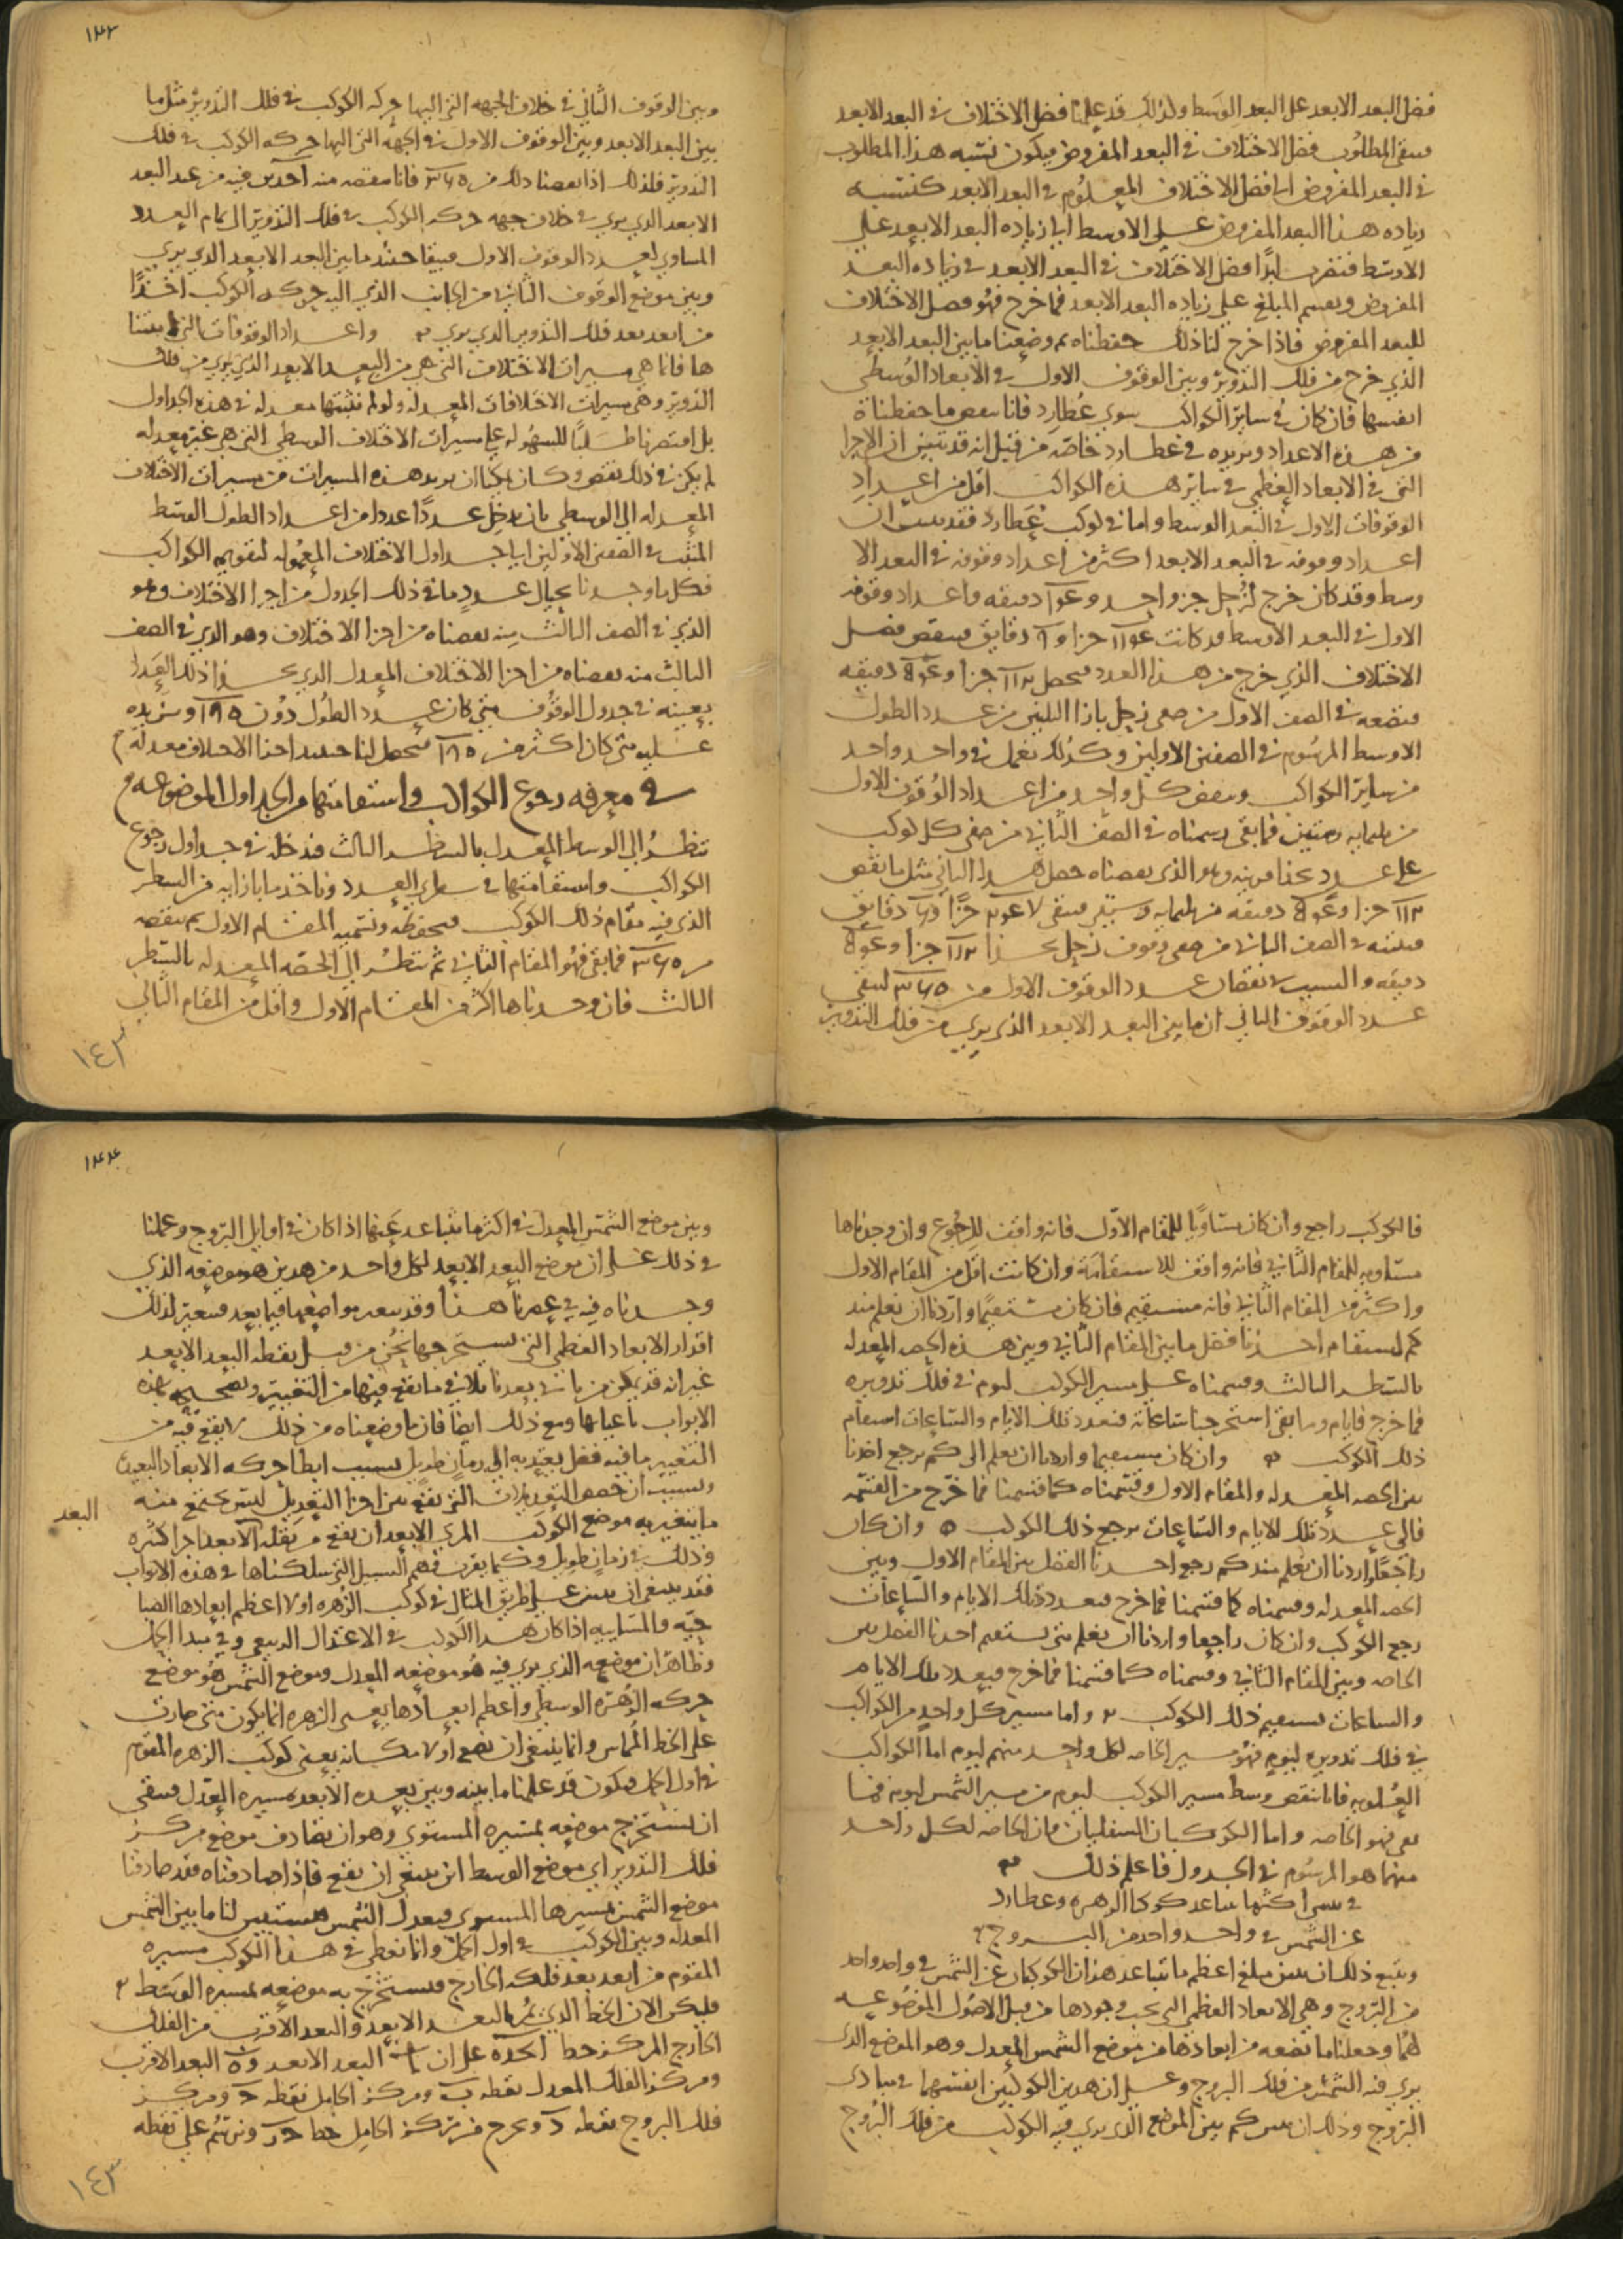 فضل البعد الابعد على البعد الوسط ولذلك قد علمنا فضل الاختلاف في البعد الابعد
فيبقى المطلوب فضل الاختلاف في البعد المفروض فيكون نسبه هذا المطلوب
في البعد المفروض الى فضل الاختلاف المعلوم في البعد الابعد كنسبه
زياده هذا البعد المفروض على الاوسط الى زياده البعد الابعد على
الاوسط فنضرب ابدا فضل الاختلاف في البعد الابعد في زياده البعد
المفروض ونقسم المبلغ على زياده البعد الابعد فما خرج فهو فضل الاختلاف
للبعد المفروض فاذا خرج لنا ذلك حفظناه ثم وضعنا ما بين البعد الابعد
الذي خرج من فلك التدوير وبين الوقوف الاول في الابعاد الوسطى
انفسها فان كان في ساير الكواكب سوى عطارد فانا ننقص ما حفظناه
من هذه الاعداد ونزيده في عطارد خاصه من قبل انه قد تبين ان الاجزا
التي في الابعاد العظمى في ساير هذه الكواكب اقل من اعداد
الوقوفات الاول في البعد الوسط واما في كوكب عطارد فقد تبين ان
اعداد وقوفه في البعد الابعد اكثر من اعداد وقوفه في البعد الا
وسط وقد كان خرج لزحل جزو واحد و دقيقه واعداد وقوفه
الاول في البعد الاوسط قد كانت جزا و دقايق فينقص فضل
الاختلاف الذي خرج من هذا العدد فيحصل جزا و دقيقه
فنضعه في الصف الاول من صفي زحل بازا الثلثين من عدد الطول
الاوسط المرسوم في الصفين الاولين وكذلك نعمل في واحد واحد
من ساير الكواكب وننقص كل واحد من اعداد الوقوف الاول
من ثلثمايه وستين فما بقي رسمناه في الصف الثاني من صفي كل كوكب
على عدد
جزا و دقيقه من ثلثمايه وستين فيبقى جزا و دقايق
فنثبته في الصف الثاني من صفي وقوف زحل بحذا جزا و
دقيقه والسبب في نقصان عدد الوقوف الاول من ليبقى
عدد الوقوف الثاني ان ما بين البعد الابعد الذي يرى من فلك التدوير
١٣٣
وبين الوقوف الثاني في خلاف الجهه التي اليها حركه الكوكب في فلك التدوير مثل ما
بين البعد الابعد وبين الوقوف الاول في الجهه التي اليها حركه الكوكب في فلك
التدوير فلذلك اذا نقصنا ذلك من فانا ننقصه منه اخذين فيه من عند البعد
الابعد الذي يرى في خلاف جهه حركه الكوكب في فلك التدوير الى تمام العدد
المساوي لعدد الوقوف الاول فيبقا حينئذ ما بين البعد الابعد الذي يرى
وبين موضع الوقوف الثاني من الجانب الذي اليه حركه الكوكب اخذا
من ابعد بعد فلك التدوير الذي يرى واعداد الوقوفات التي اثبتنا
ها فانما هي مسيرات الاختلاف التي هي من البعد الابعد الذي يرى من فلك
التدوير وهي مسيرات الاختلافات المعدله ولو لم نثبتها معدله في هذه الجداول
بل اقتصرنا طلبا للسهوله على مسيرات الاختلاف الوسطى التي هي غير معدله
لم يكن في ذلك نقص وكان يمكنا ان نرد هذه المسيرات من مسيرات الاختلاف
المعدله الى الوسطى بان ندخل عددا عددا من اعداد الطول الوسط
المثبت في الصفين الاولين الى جداول الاختلاف المعموله لتقويم الكواكب
فكل ما وجدنا بحيال عدد ما في ذلك الجدول من اجزا الاختلاف وهو
الذي في الصف الثالث منه نقصناه من اجزا الاختلاف وهو الذي في الصف
الثالث منه نقصناه من اجزا الاختلاف المعدل الذي بحذا ذلك العدد
بعينه في جدول الوقوف متى كان عدد الطول دون ونزيده
عليه متى كان اكثر من فيحصل لنا حينئذ اجزا الاختلاف معدله
في معرفه رجوع الكواكب واستقامتها من الجداول الموضوعه
تنظر الى الوسط المعدل بالسطر الثالث فندخله في جداول رجوع
الكواكب واستقامتها في سطري العدد وناخذ ما بازايه من السطر
الذي فيه مقام ذلك الكوكب فنحفظه ونسميه المقام الاول ثم ننقصه
من فما بقي فهو المقام الثاني ثم تنظر الى الحصه المعدله بالسطر
الثالث فان وجدناها اكثر من المقام الاول واقل من المقام الثاني
١٤٣
فالكوكب راجع وان كان مساويا للمقام الاول فانه واقف للرجوع وان وجدناها
مساويه للمقام الثاني فانه واقف للاستقامه وان كانت اقل من المقام الاول
واكثر من المقام الثاني فانه مستقيم فان كان مستقيما واردنا ان نعلم منذ
كم استقام اخذنا فضل ما بين المقام الثاني وبين هذه الحصه المعدله
بالسطر الثالث وقسمناه على مسير الكوكب ليوم في فلك تدويره
فما خرج فايام وما بقي استخرجنا ساعاته فبعدد تلك الايام والساعات استقام
ذلك الكوكب وان كان مستقيما واردنا ان نعلم الى كم يرجع اخذنا
بين الحصه المعدله والمقام الاول وقسمناه كما قسمنا فما خرج من القسمه
فالى عدد تلك الايام والساعات يرجع ذلك الكوكب وان كان
راجعا واردنا ان نعلم منذ كم رجع اخذنا الفضل بين المقام الاول وبين
الحصه المعدله وقسمناه كما قسمنا فما خرج فبعدد تلك الايام والساعات
رجع الكوكب وان كان راجعا واردنا ان نعلم متى يستقيم اخذنا الفضل بين
الخاصه وبين المقام الثاني وقسمناه كما قسمنا فما خرج فبعدد تلك الايام
والساعات يستقيم ذلك الكوكب واما مسير كل واحد من الكواكب
في فلك تدويره ليوم فهو مسير الخاصه لكل واحد منهم ليوم اما الكواكب
العلويه فانا ننقص وسط مسير الكوكب ليوم من مسير الشمس ليوم فما
بقي فهو الخاصه واما الكوكبان السفليان فان الخاصه لكل واحد
منهما هو المرسوم في الجدول فاعلم ذلك
في تبين اكثر ما يتباعد كوكبا الزهره وعطارد
عن الشمس في واحد واحد من البروج
ويتبع ذلك ان نبين مبلغ اعظم ما يتباعد هذان الكوكبان عن الشمس في واحد واحد
من البروج وهي الابعاد العظمى التي يجب وجودها من قبل الاصول الموضوعه
لهما وجعلنا ما نضعه من ابعادها من موضع الشمس المعدل وهو الموضع الذي
يرى فيه الشمس من فلك البروج وعلى ان هذين الكوكبين انفسهما في مبادي
البروج وذلك ان نبين كم بين الموضع الذي يرى فيه الكوكب من فلك البروج
١٣٤
وبين موضع الشمس المعدل في اكثر ما يتباعد عنها اذا كان في اوايل البروج وعملنا
في ذلك على ان موضع البعد الابعد لكل واحد من هذين هو موضعه الذي
وجدناه فيه في عصرنا هذا وقد يتغير مواضعها فيما بعد فيتغير لذلك
اقدار الابعاد العظمى التي نستخرجها نحن من قبل نقطه البعد الابعد
غير انه قد يمكن من ياتي بعدنا تلافي ما يقع فيها من التغيير وتصحيحه بهذه
الابواب باعيانها ومع ذلك ايضا فان ما وضعناه من ذلك لا يقع فيه من
التغيير ما فيه فضل يعتد به الى زمان طويل بسبب ابطا حركه الابعاد البعيده
وبسبب ان حصص التعديلات التي تقع بين اجزا التعديل ليس يجتمع منه
البعد
ما يتغير به موضع الكوكب المرى الابعد ان يقع من نقله الابعاد اجزا كثيره
وذلك في زمان طويل وكيما يقرب فهم السبيل التي سلكناها في هذه الابواب
فقد ينبغي ان نبين على طريق المثال في كوكب الزهره اولا اعظم ابعادها الصبا
حيه والمسايه اذا كان هذا الكوكب في الاعتدال الربيعي وفي مبدا الحمل
وظاهر ان موضعه الذي يرى فيه هو موضعه المعدل وموضع الشمس هو موضع
حركه الزهره الوسطى واعظم ابعادها يعني الزهره انما يكون متى صارت
على الخط المماس وانما ينبغي ان نضع اولا مكانه يعني كوكب الزهره المقوم
في اول الحمل فيكون قد علمنا ما بينه وبين بعده الابعد بمسيره المعدل فيبقى
ان نستخرج موضعه بمسيره المستوي وهو ان نصادف موضع مركز
فلك التدوير اي موضع الوسط اين ينبغي ان يقع فاذا صادفناه فقد صادفنا
موضع الشمس بمسيرها المستوي فبعدل الشمس فيستبين لنا ما بين الشمس
المعدله وبين الكوكب في اول الحمل وانما نعطى في هذا الكوكب مسيره
المقوم من ابعد بعد فلكه الخارج فيستخرج به موضعه بمسيره الوسط
فليكن الان الخط الذي يمر بالبعد الابعد والبعد الاقرب من الفلك
الخارج المركز خط على ان البعد الابعد و البعد الاقرب
ومركز الفلك المعدل نقطه ب ومركز الحامل نقطه ومركز
فلك البروج نقطه ونخرج من مركز الحامل خط ونرسم على نقطه
١٤٣